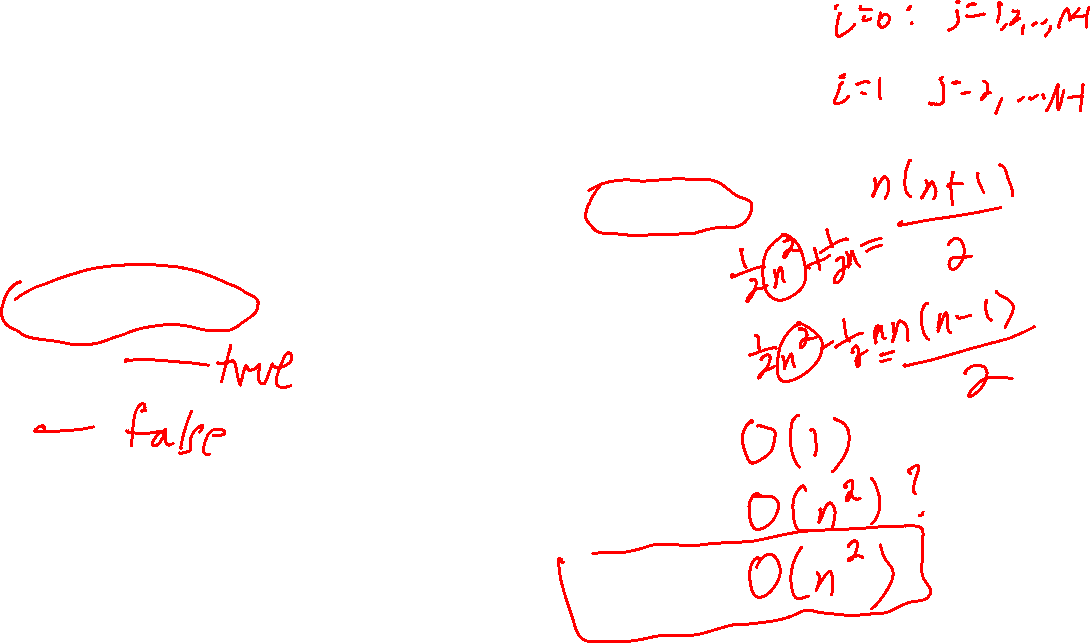 i=0: j=1,2,..,N-1
i=1 j=2,...N-1
n(n+1)
1/2 n² + 1/2 n = 2
1/2 n² - 1/2 n = n(n-1)
2
true
false
O(1)
O(n²) ?
O(n²)